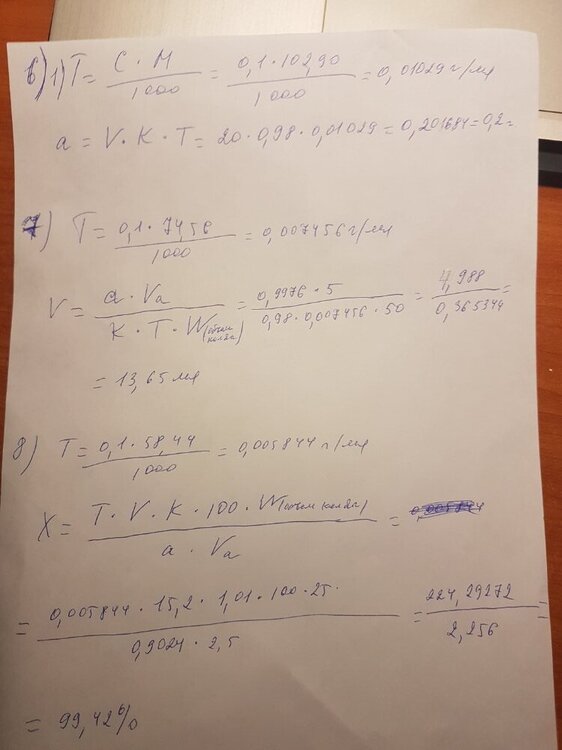 6) 1) T = C · M / 1000 = 0,1 · 102,90 / 1000 = 0,01029 г/мл
a = V · K · T = 20 · 0,98 · 0,01029 = 0,201684 = 0,2 г
7) T = 0,1 · 74,56 / 1000 = 0,007456 г/мл
V = a · Va / K · T · W(объем колбы) = 0,9976 · 5 / 0,98 · 0,007456 · 50 = 4,988 / 0,365344 =
= 13,65 мл
8) T = 0,1 · 58,44 / 1000 = 0,005844 г/мл
X = T · V · K · 100 · W(объем колбы) / a · Va =
= 0,005844 · 15,2 · 1,01 · 100 · 25 / 0,9024 · 2,5 = 224,29272 / 2,256 =
= 99,42%